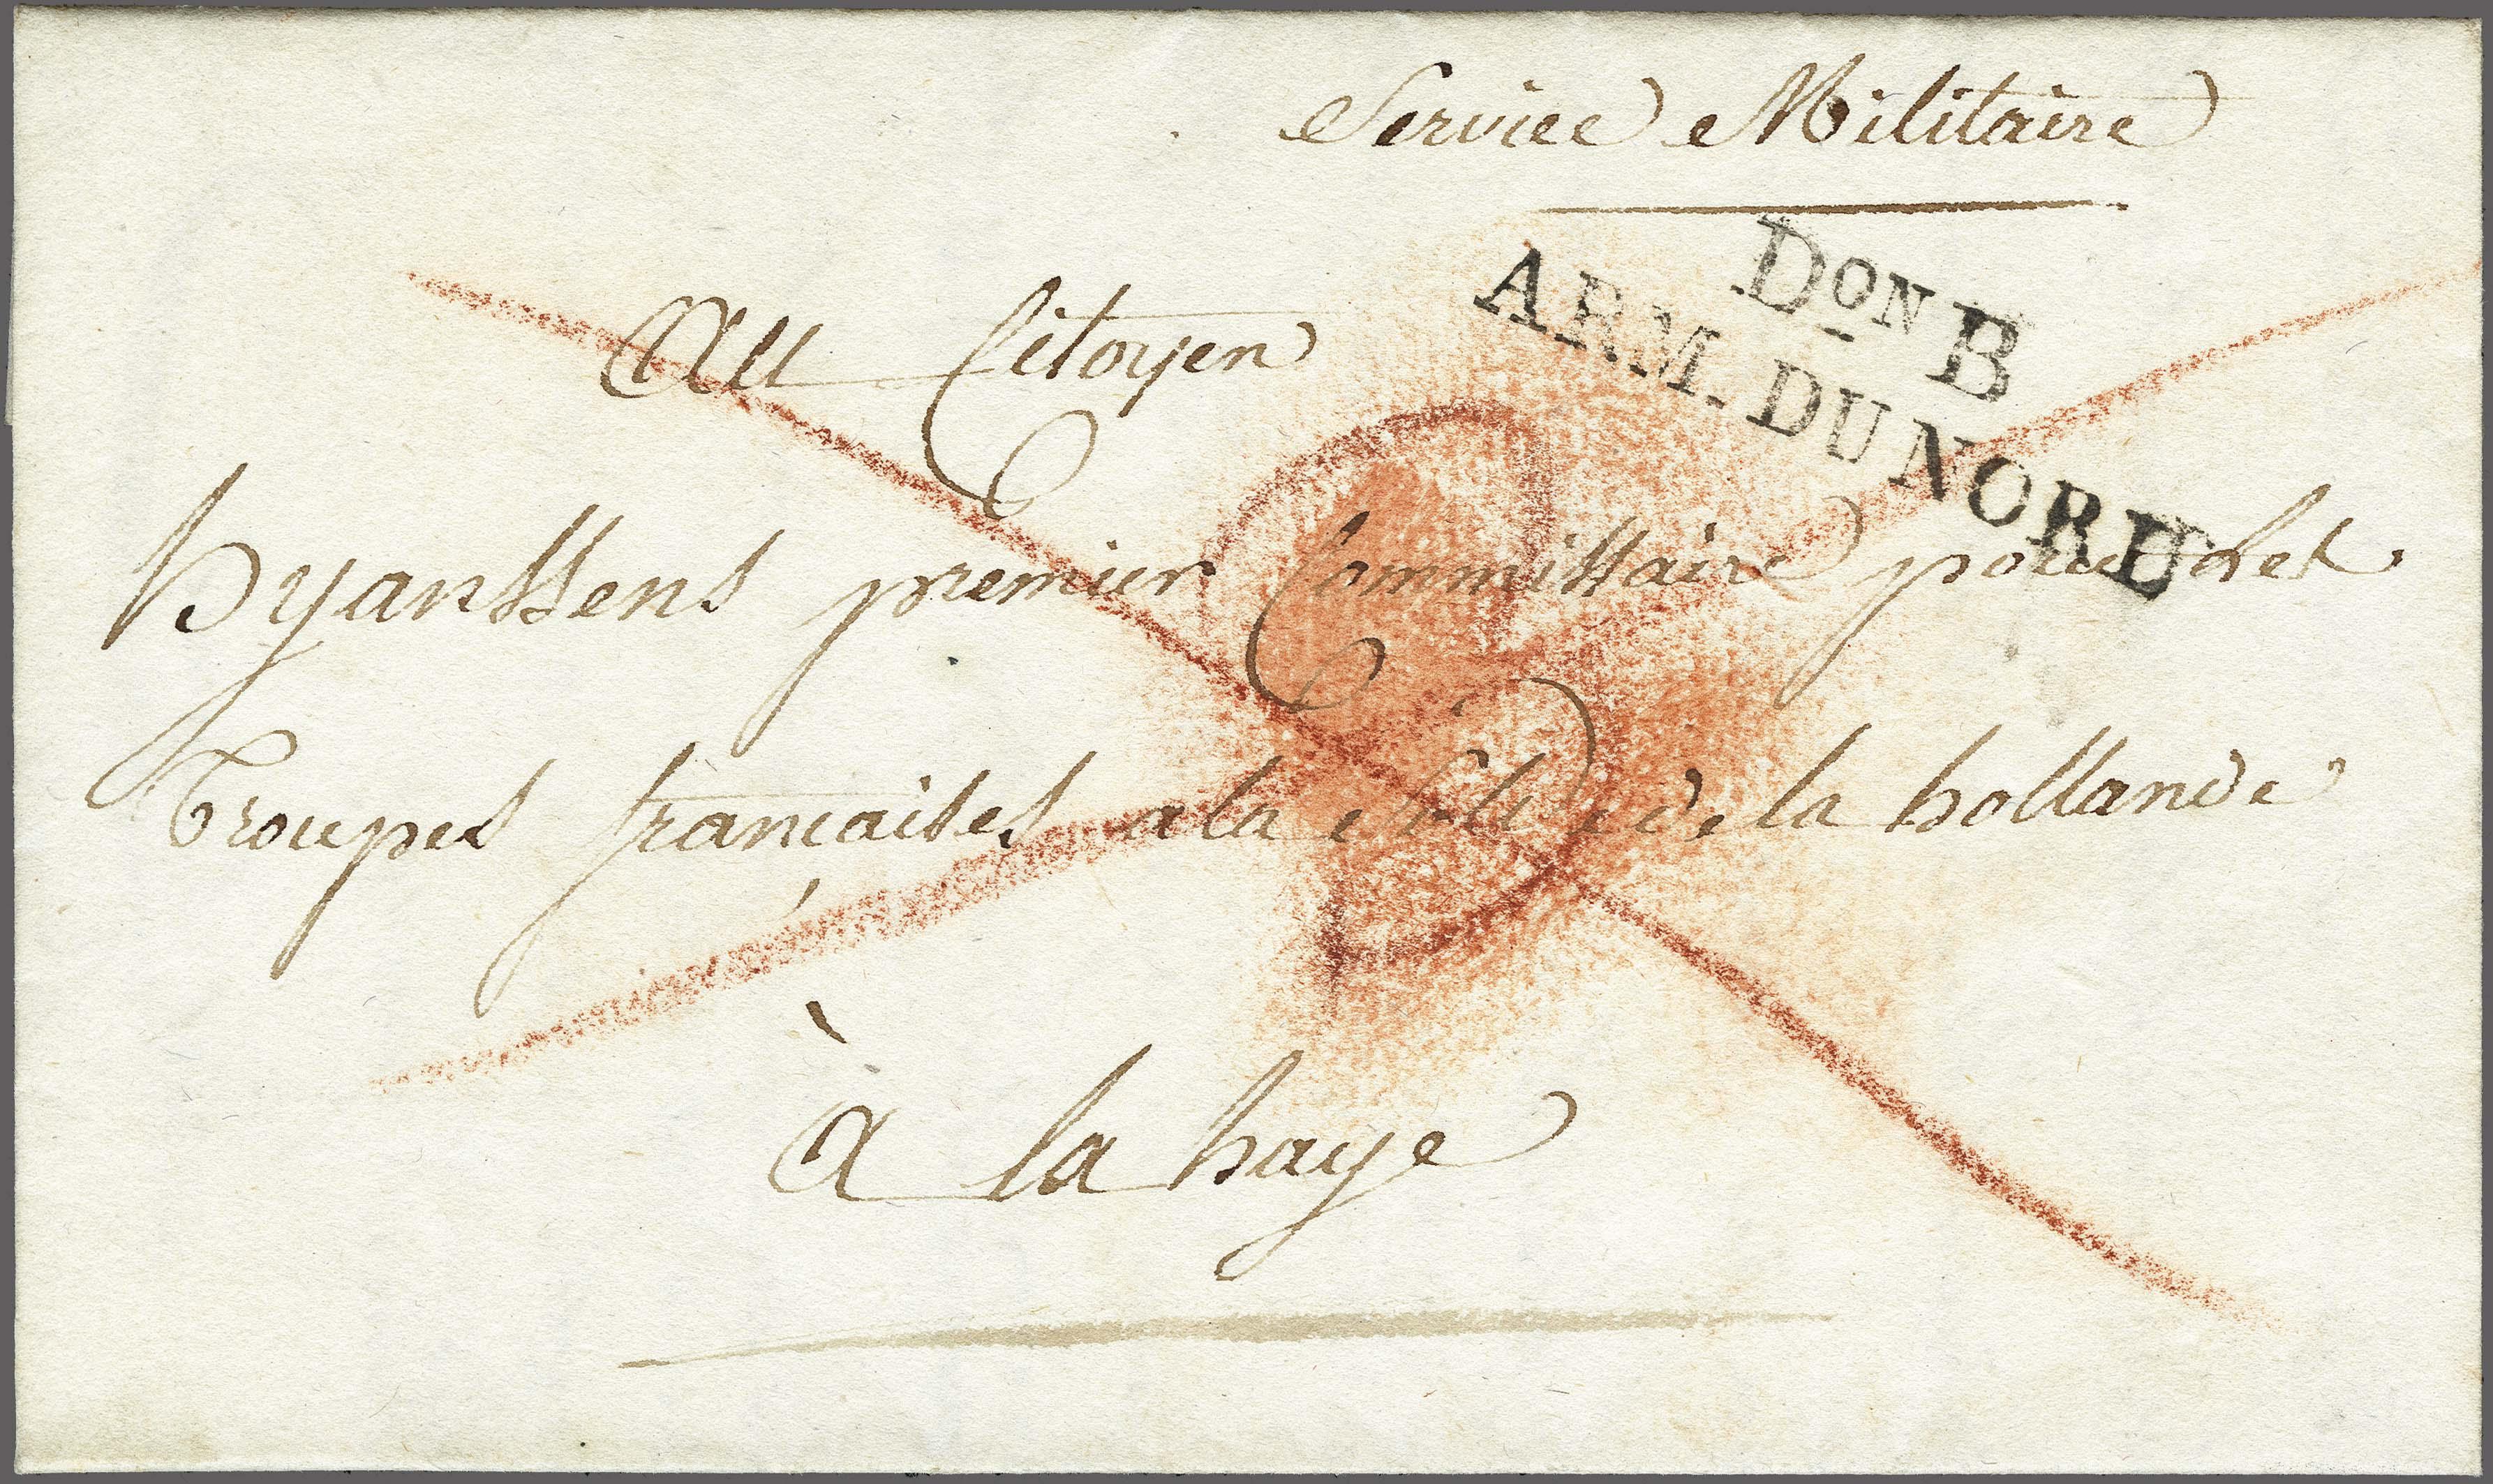 Service Militaire
Don B
ARM. DU NORD
Au Citoyen
hyanssens premier Commissaire pour les
Troupes françaises a la solde de la hollande
à la haye